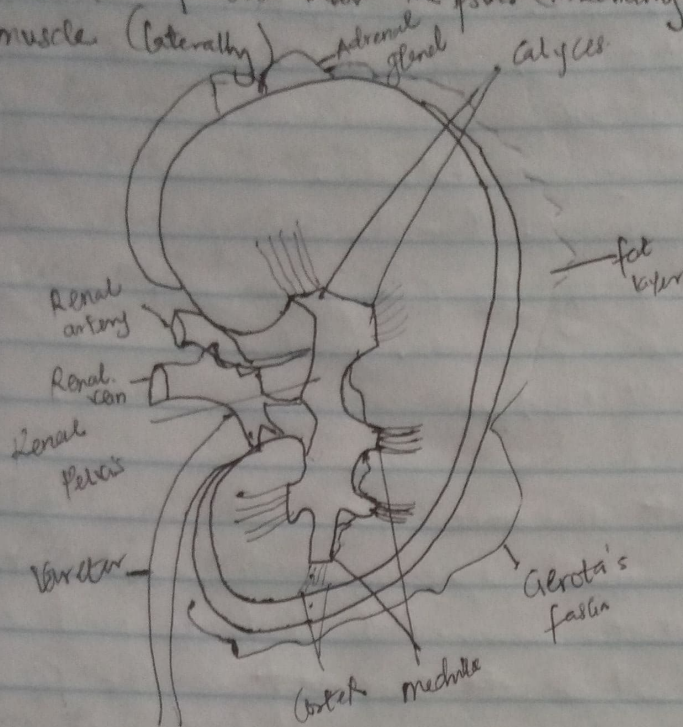 muscle (laterally)
Adrenal
gland
Calyces
fat
layer
Renal
artery
Renal
vein
Renal
Pelvis
Vureter
Gerota's
fascia
Cortex
medulla